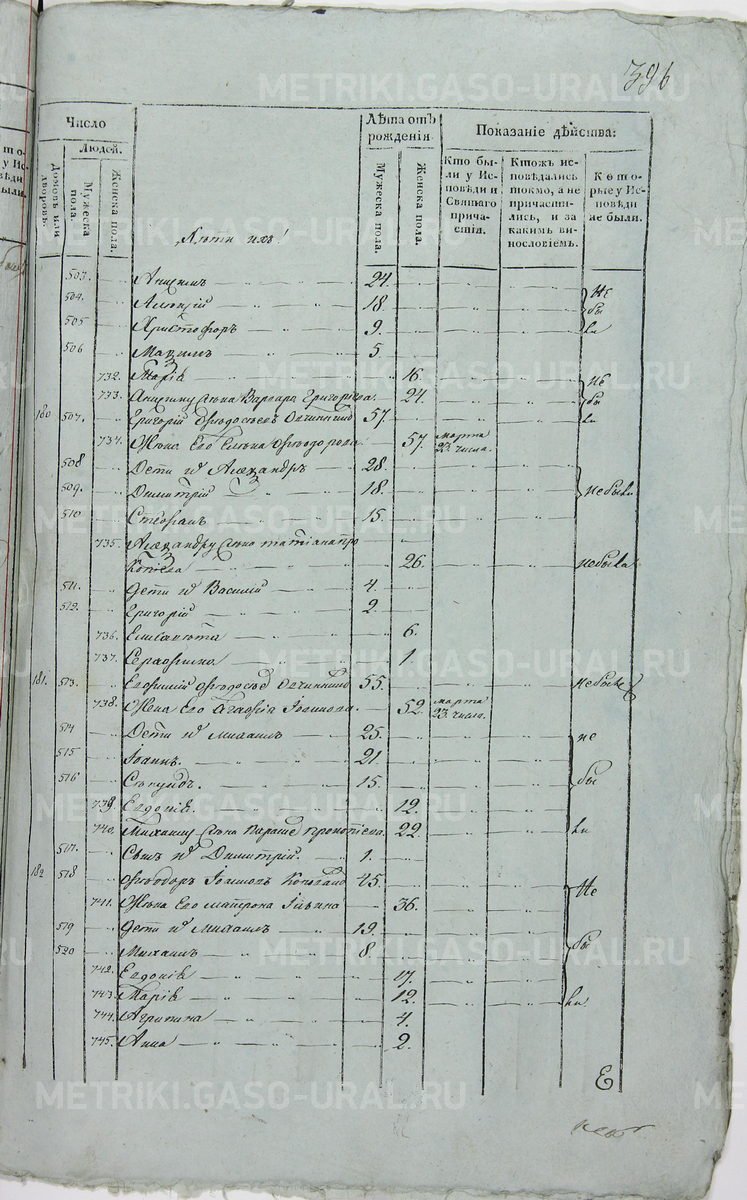 396
METRIKI.GASO-URAL.RU
Число
Людей.
Домовъ или дворовъ.
Мужеска пола.
Женска пола.
Лѣта отъ рожденія
Мужеска пола.
Женска пола.
Показаніе дѣйства:
Кто были у Исповѣди и Святаго причастія.
Ктожъ исповѣдались токмо, а не причастились, и за какимъ винословіемъ.
Которые у Исповѣди не были.
Дѣти ихъ!
503. 24. Не
504. 18. бы
505 Христофоръ 9. ли
506 Максимъ 5.
732. Марія 16. не
733. жена Варвара Григорьева. 24. бы
180 507. Григорій Ѳеодосѣевъ Овчинниковъ 57. ли
734. Жена Его Елена Ѳеодорова 57. марта 23. числа.
508 Дети их Александръ 28.
509. Димитрій 18. не были
510 Стефанъ 15.
735. Александру жена татіана про
копьева 26. небыла
511. дети их Василій 4.
512. Григорій 2.
736. Елисавета 6.
737. Серафима 1.
181. 513. Евфимій Ѳеодосѣев Овчинников 55. небылъ
738. Жена Его Агафія Іоаннова. 52. марта 23. числа.
514 Дети их михаилъ 25. не
515 Іоаннъ 21
516 Секундъ. 15. бы
739. Евдокія. 12.
740. Михаилу жена прокопіева. 22. ли
517. Сынъ их Димитрій. 1.
182 518 Ѳеодоръ 45. Не
741. Жена Его матрона Ильина 36.
519 дети их михаилъ 19.
520 Михаилъ 8. бы
742. Евдокія 17.
743. Марія 12. ли
744. Агрипина 4.
745. Анна 2.